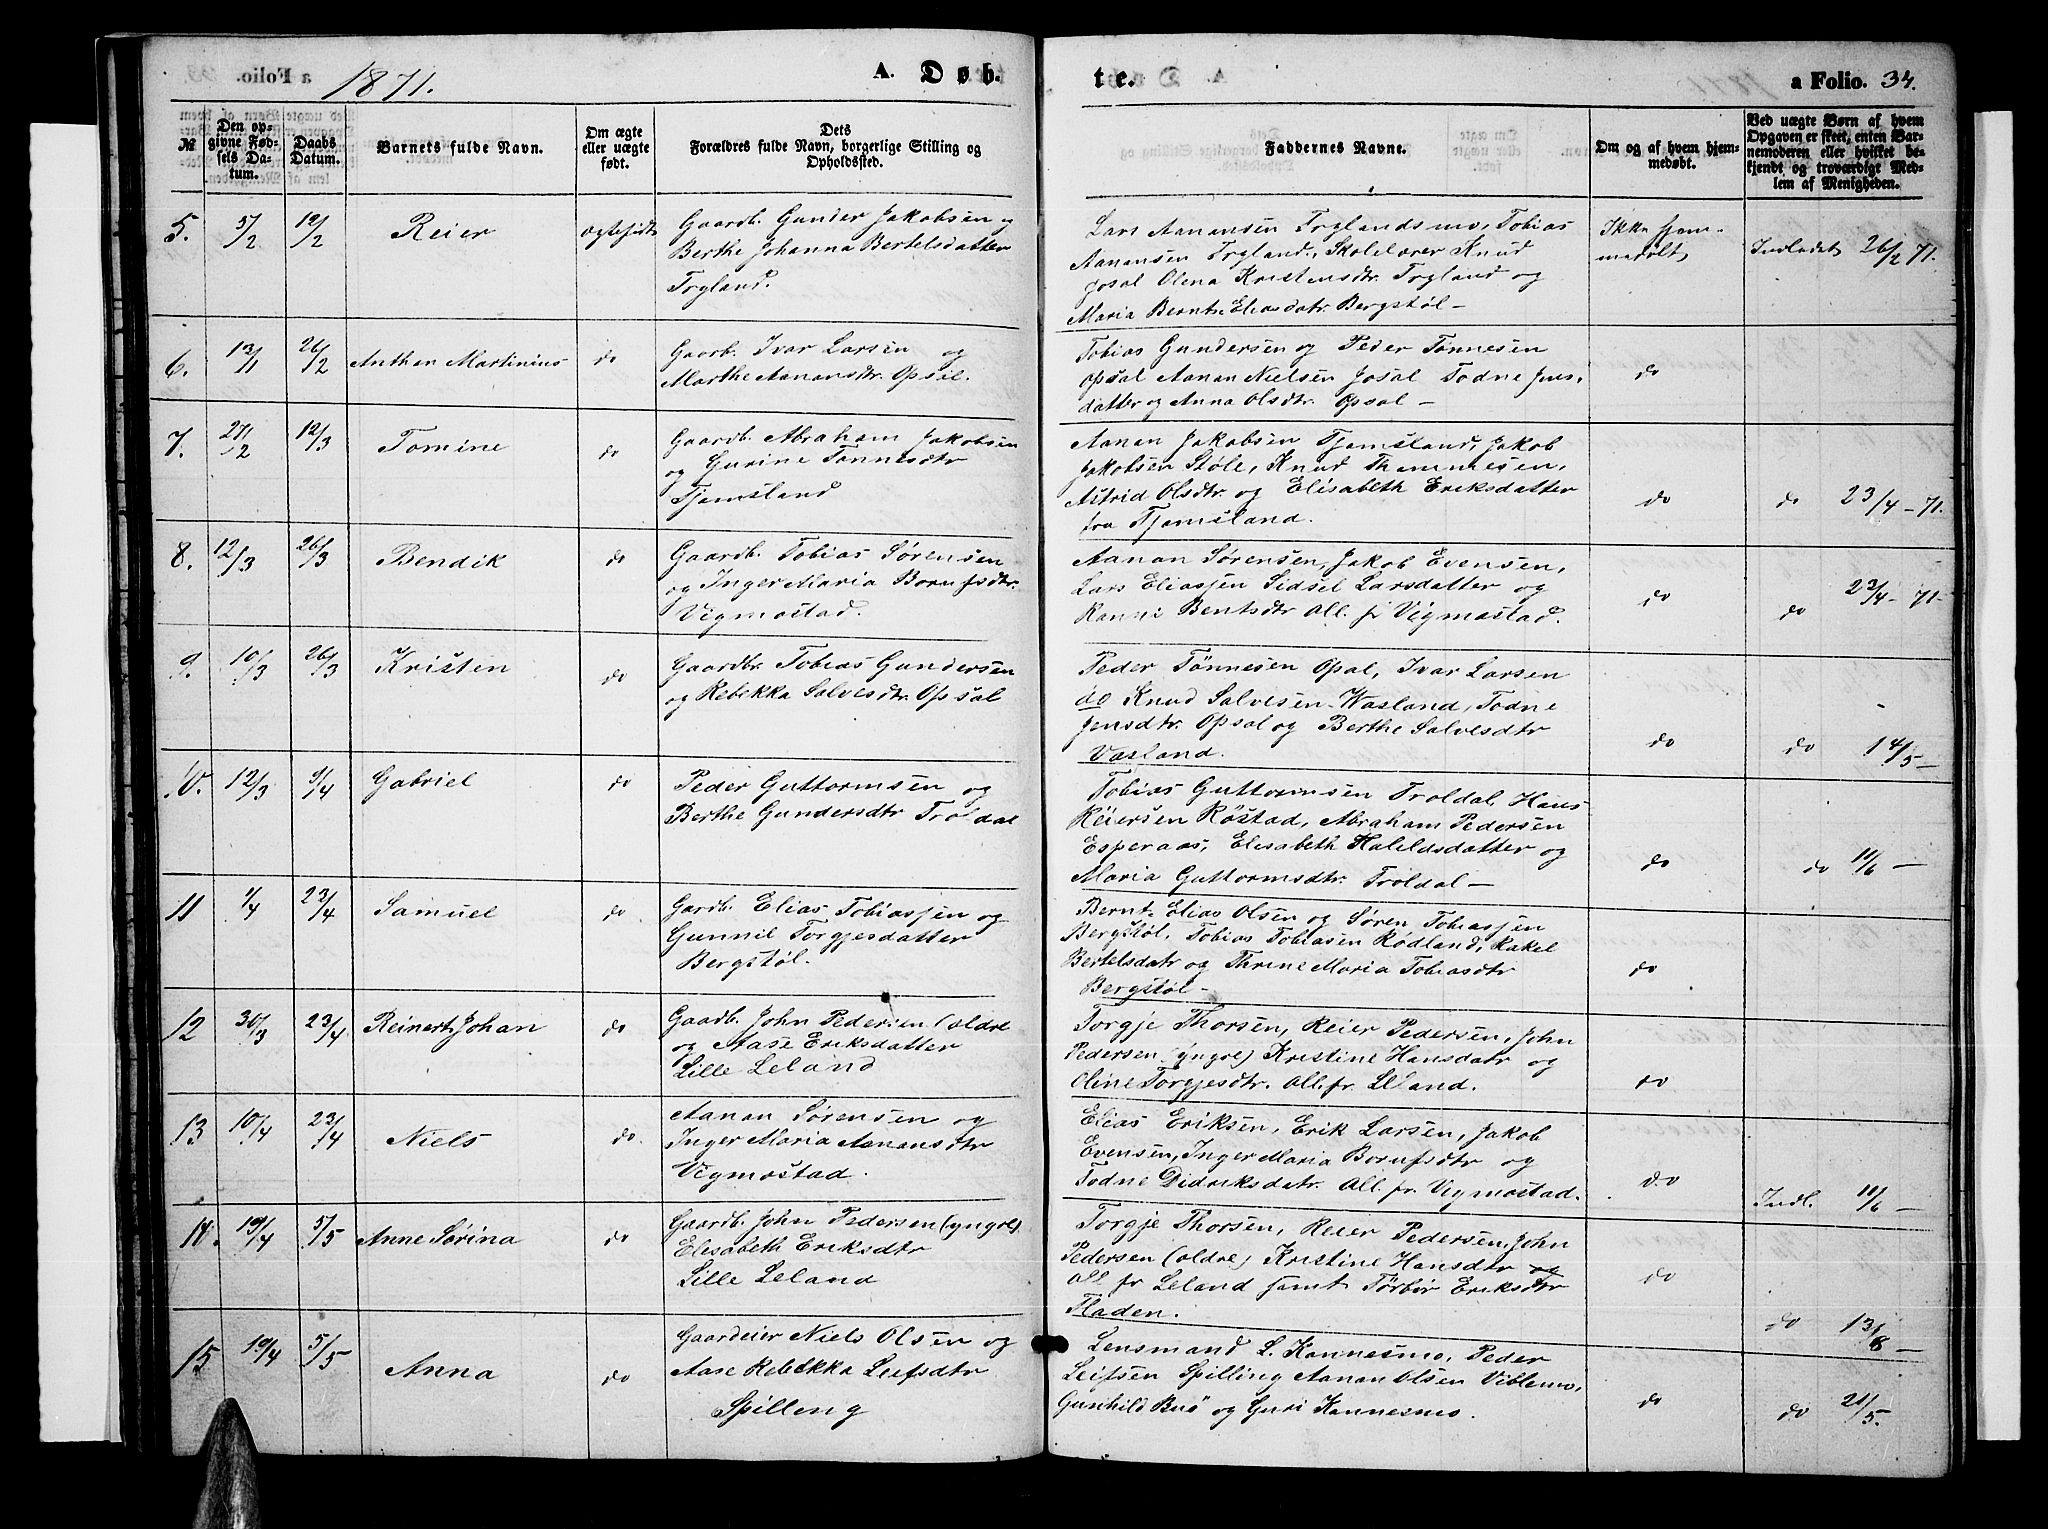 1871.
A. Døb.
№
Den op-
givne Fød-
sels Da-
tum.
Daabs
Datum.
Barnets fulde Navn.
Om ægte
eller uægte
født.
Dets
Forældres fulde Navn, borgerlige Stilling og
Opholdssted.
te.
a Folio. 34.
Faddernes Navne.
Om og af hvem hjem-
medøbt.
Ved uægte Børn af hvem
Opgaven er skeet, enten Bar-
nemoderen eller hvilket be-
kjendt og troværdigt Med-
lem af Menigheden.
5. 5/2 12/2 Reier
Gaardb. Gunder Jakobsen og
Berthe Johanna Bertelsdatter
Trygland.
Lars Aanensen Tryglandsmo, Tobias
Aanensen Trygland, Skolelærer Knud
Josal Olena Kristensdtr. Trygland og
Maria Bernt Eliasdatr. Bergstøl –
Ikke hjem-
medøbt
Indladet 26/2 71.
6. 13/1 26/2 Anthon Martinius do
Gaardb. Ivar Larsen og
Marthe Aanansdtr. Opsal.
Tobias Gundersen og Peder Tønnesen
Opsal Aanan Nielsen Josal Todne Jens-
datter og Anna Olsdtr. Opsal –
do
7. 27/2 12/3 Tomine do
Gaardb. Abraham Jakobsen
og Gurine Tønnesdtr
Tjomsland
Aanan Jakobsen Tjomsland, Jakob
Jakobsen Støle, Knud Thommesen,
Astrid Olsdtr. og Elisabeth Eriksdatter
fra Tjomsland.
do do 23/4 – 71.
8. 12/3 26/3 Bendik do
Gaardb. Tobias Sørensen
og Inger Maria Bornfsdtr.
Vigmostad.
Aanan Sørensen, Jakob Evensen,
Lars Eliasjen Sidsel Larsdatter og
Ranni Bentsdtr All. fr Vigmostad.
do do 23/4 – 71 –
9. 10/3 26/3 Kristen do
Gaardbr. Tobias Gundersen
og Rebekka Salvesdtr. Opsal
Peder Tönnesen Opsal, Ivar Larsen
do Knud Salvesen Wasland, Todne
Jensdtr. Opsal og Berthe Salvesdtr
Vasland.
do do 14/5 –
10. 12/3 9/4 Gabriel do
Peder Guttormsen og
Berthe Gundersdtr Troldal
Tobias Guttormsen Troldal, Hans
Reiersen Röstad, Abraham Pedersen
Esperaas, Elisabeth Haleldsdatter og
Maria Guttormsdtr. Troldal –
do do 11/6 –
11 1/4 23/4 Samuel do
Gardb. Elias Tobiasjen og
Gunnil Torgjesdatter
Bergstøl.
Bernt Elias Olsen og Søren Tobiasjen
Bergstøl, Tobias Tobiasen Rödland, Rakel
Bertelsdatr og Thrine Maria Tobiasdtr
Bergstøl –
do
12 30/3 23/4 Reinert Johan do
Gaardb. John Pedersen (ældre
og Aase Eriksdatter
Lille Leland
Torgje Thorsen, Reier Pedersen, John
Pedersen (yngre) Kristine Hansdatr og
Oline Torgjesdtr. All. fr. Leland.
do
13 10/4 23/4 Niels do.
Aanan Sørensen og
Inger Maria Aanansdtr
Vigmostad.
Elias Eriksen, Erik Larsen, Jakob
Evensen, Inger Maria Bornfsdtr og
Todne Didriksdatr. All. fr. Vigmostad.
do Indl. 11/6 –
14. 19/4 5/5 Anne Sørina do
Gaardb. John Pedersen (yngre)
Elisabeth Eriksdtr
Lille Leland
Torgje Thorsen, Reier Pedersen, John
Pedersen (ældre) Kristine Hansdtr og
All fr Leland samt Tørbør Eriksdtr
Fladen.
do do 13/8 –
15 19/4 5/5 Anna do
Gaardeier Niels Olsen og
Aase Rebekka Leifsdtr
Spilling
Lensmand L. Kannesmo, Peder
Leifsen Spilling Aanan Olsen Viblemo,
Gunhild Buö og Guri Kannesmo.
do do 21/5.